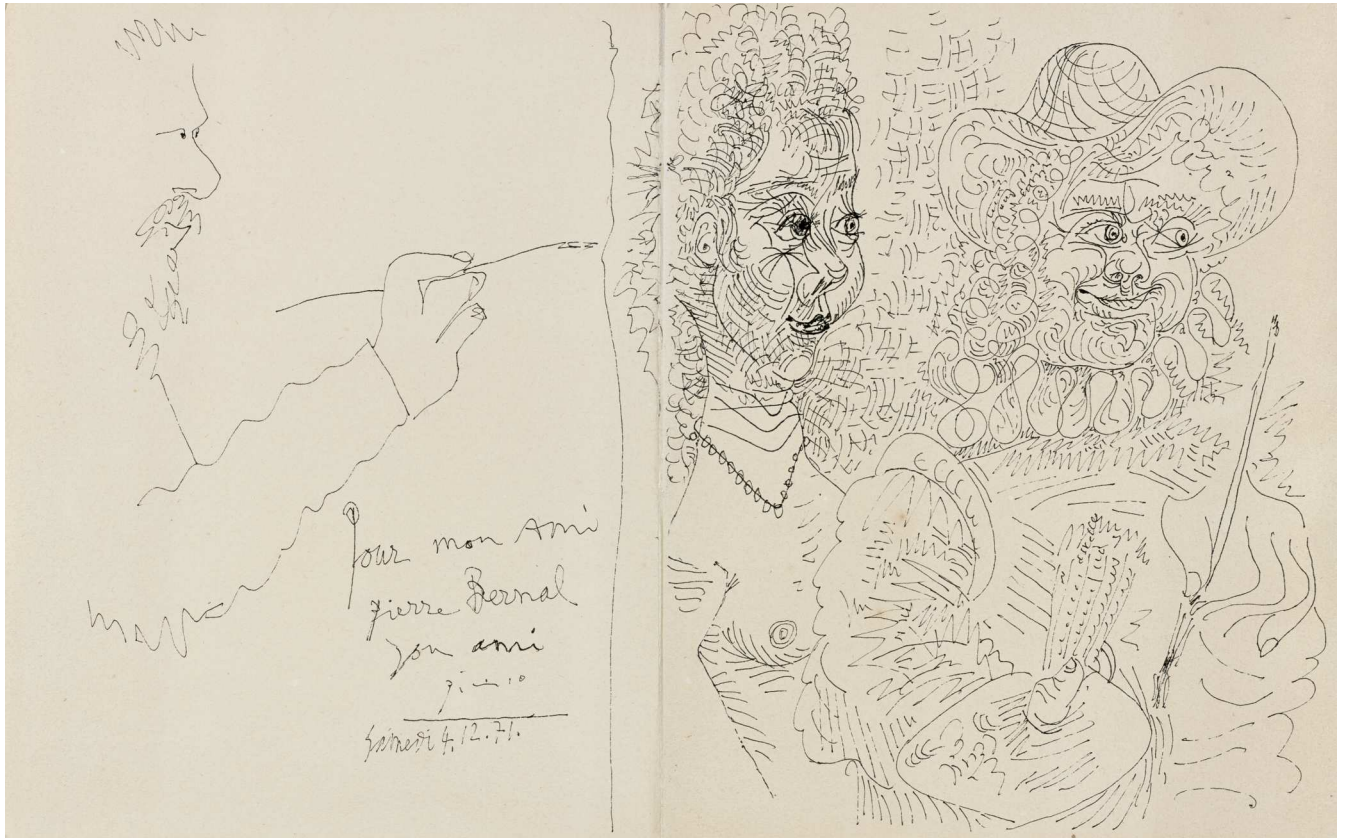 Pour mon Ami
Pierre Bernal
Son ami
Picasso
Samedi 4.12.71.